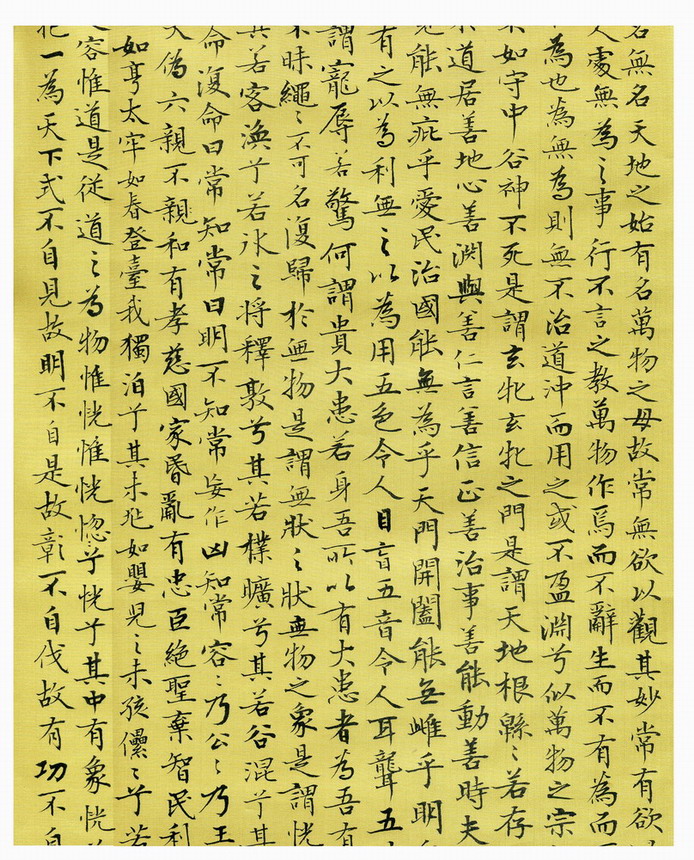 名無名天地之始有名萬物之母故常無欲以觀其妙常有欲
人處無為之事行不言之教萬物作焉而不辭生而不有為而
為也為無為則無不治道沖而用之或不盈淵兮似萬物之宗
不如守中谷神不死是謂玄牝玄牝之門是謂天地根緜〻若存
道居善地心善淵與善仁言善信正善治事善能動善時夫
能無疵乎愛民治國能無為乎天門開闔能無雌乎明
有之以為利無之以為用五色令人目盲五音令人耳聾五
謂寵辱若驚何謂貴大患若身吾所以有大患者為吾有
不昧繩〻不可名復歸於無物是謂無狀之狀無物之象是謂恍
其若客渙兮若冰之將釋敦兮其若樸曠兮其若谷混兮其
命復命曰常知常曰明不知常妄作凶知常容〻乃公〻乃王
大偽六親不親和有孝慈國家昏亂有忠臣絕聖棄智民利
如享太牢如春登臺我獨泊兮其未兆如嬰兒之未孩儽〻兮若
容惟道是從道之為物惟恍惟恍惚兮恍兮其中有象恍
一為天下式不自見故明不自是故彰不自伐故有功不自